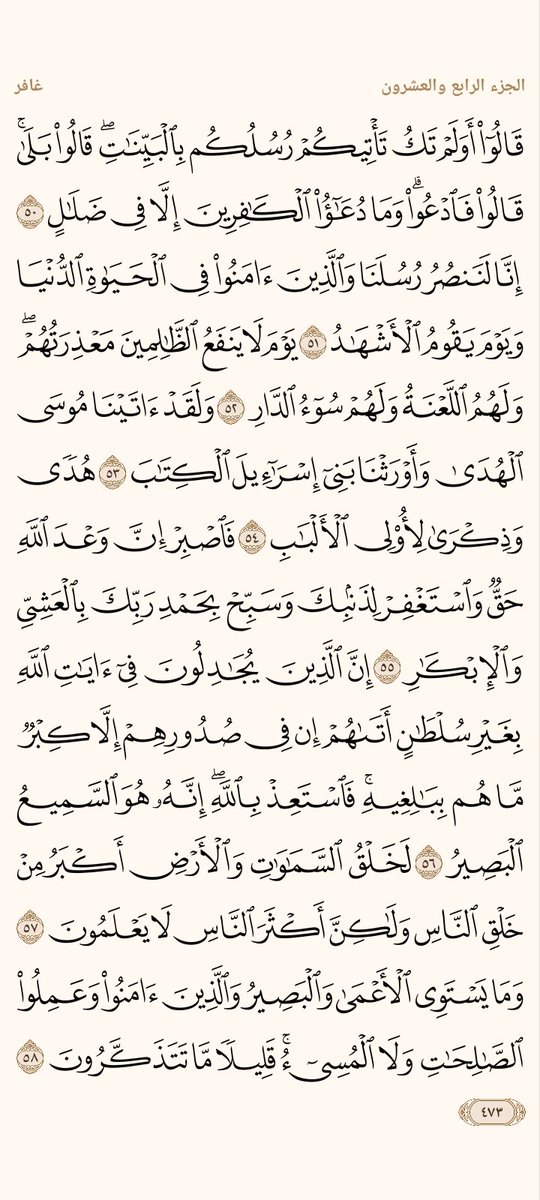 الجزء الرابع والعشرون غافر
قَالُوٓا۟ أَوَلَمْ تَكُ تَأْتِيكُمْ رُسُلُكُم بِٱلْبَيِّنَـٰتِ ۖ قَالُوا۟ بَلَىٰ ۚ
قَالُوا۟ فَٱدْعُوا۟ ۗ وَمَا دُعَـٰٓؤُا۟ ٱلْكَـٰفِرِينَ إِلَّا فِى ضَلَـٰلٍ ٥٠
إِنَّا لَنَنصُرُ رُسُلَنَا وَٱلَّذِينَ ءَامَنُوا۟ فِى ٱلْحَيَوٰةِ ٱلدُّنْيَا
وَيَوْمَ يَقُومُ ٱلْأَشْهَـٰدُ ٥١ يَوْمَ لَا يَنفَعُ ٱلظَّـٰلِمِينَ مَعْذِرَتُهُمْ ۖ
وَلَهُمُ ٱللَّعْنَةُ وَلَهُمْ سُوٓءُ ٱلدَّارِ ٥٢ وَلَقَدْ ءَاتَيْنَا مُوسَى
ٱلْهُدَىٰ وَأَوْرَثْنَا بَنِىٓ إِسْرَٰٓءِيلَ ٱلْكِتَـٰبَ ٥٣ هُدًى
وَذِكْرَىٰ لِأُو۟لِى ٱلْأَلْبَـٰبِ ٥٤ فَٱصْبِرْ إِنَّ وَعْدَ ٱللَّهِ
حَقٌّ وَٱسْتَغْفِرْ لِذَنۢبِكَ وَسَبِّحْ بِحَمْدِ رَبِّكَ بِٱلْعَشِىِّ
وَٱلْإِبْكَـٰرِ ٥٥ إِنَّ ٱلَّذِينَ يُجَـٰدِلُونَ فِىٓ ءَايَـٰتِ ٱللَّهِ
بِغَيْرِ سُلْطَـٰنٍ أَتَىٰهُمْ إِن فِى صُدُورِهِمْ إِلَّا كِبْرٌ
مَّا هُم بِبَـٰلِغِيهِ ۚ فَٱسْتَعِذْ بِٱللَّهِ ۖ إِنَّهُۥ هُوَ ٱلسَّمِيعُ
ٱلْبَصِيرُ ٥٦ لَخَلْقُ ٱلسَّمَـٰوَٰتِ وَٱلْأَرْضِ أَكْبَرُ مِنْ
خَلْقِ ٱلنَّاسِ وَلَـٰكِنَّ أَكْثَرَ ٱلنَّاسِ لَا يَعْلَمُونَ ٥٧
وَمَا يَسْتَوِى ٱلْأَعْمَىٰ وَٱلْبَصِيرُ وَٱلَّذِينَ ءَامَنُوا۟ وَعَمِلُوا۟
ٱلصَّـٰلِحَـٰتِ وَلَا ٱلْمُسِىٓءُ ۚ قَلِيلًا مَّا تَتَذَكَّرُونَ ٥٨
٤٧٣